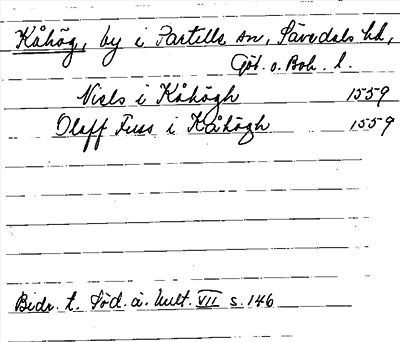 Kåhög, by i Partille sn, Sävedals hd,
Göt. o. Boh. l.
Niels i Kåhögh 1559
Olaff Fuss i Kåhögh 1559
Bidr. t. Söd. ä. kult. VII s. 146